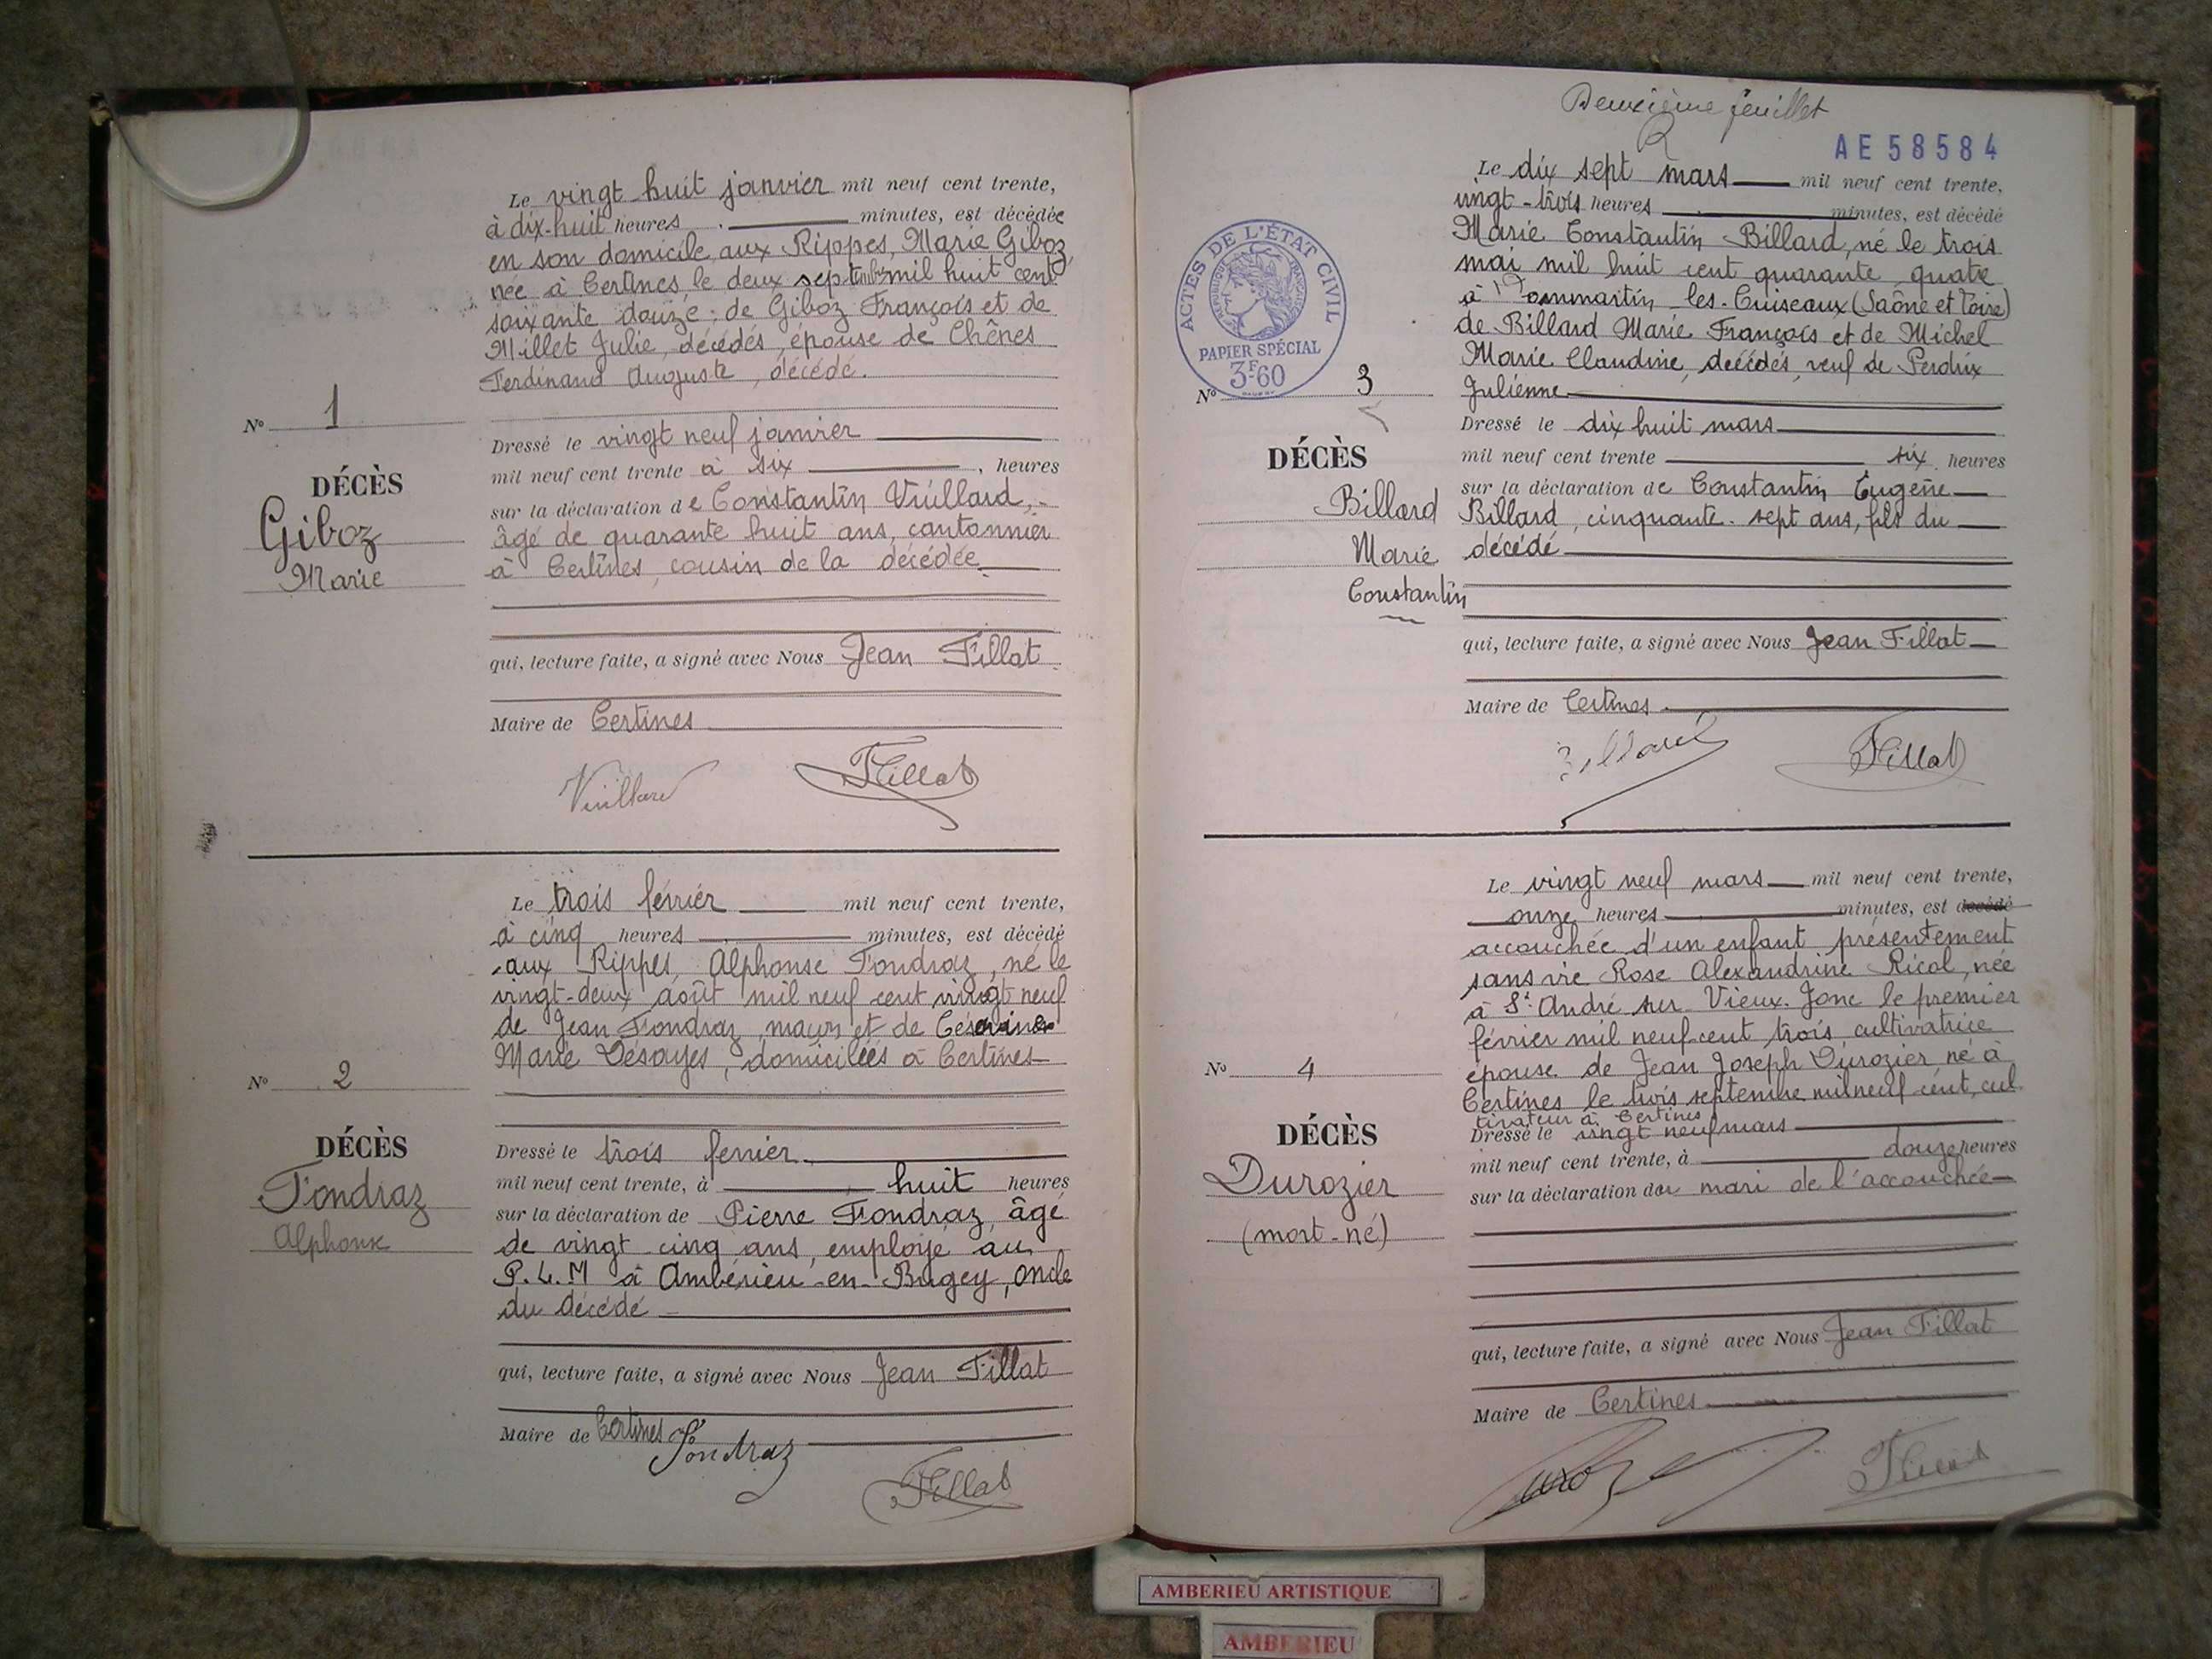 Le vingt huit janvier mil neuf cent trente,
à dix-huit heures minutes, est décédée
en son domicile aux Rippes, Marie Giboz,
née à Certines, le deux septembre mil huit cent
soixante douze, de Giboz François et de
Millet Julie, décédés, épouse de Chênes
Ferdinand Auguste, décédé.
No 1
DÉCÈS
Giboz
Marie
Dressé le vingt neuf janvier
mil neuf cent trente à six, heures
sur la déclaration de Constantin Vuillard,
âgé de quarante huit ans, cantonnier
à Certines, cousin de la décédée
qui, lecture faite, a signé avec Nous Jean Fillat
Maire de Certines
Vuillard Fillat
Le trois février mil neuf cent trente,
à cinq heures minutes, est décédé
aux Rippes, Alphonse Fondraz, né le
vingt-deux août mil neuf cent vingt neuf
de Jean Fondraz, maçon et de Césarine
Marie Desayes, domiciliés à Certines
No 2
DÉCÈS
Fondraz
Alphonse
Dressé le trois fevrier
mil neuf cent trente, à huit heures
sur la déclaration de Pierre Fondraz, âgé
de vingt-cinq ans, employé au
P.L.M à Ambérieu-en-Bugey, oncle
du décédé
qui, lecture faite, a signé avec Nous Jean Fillat
Maire de Certines
Fondraz
Fillat
Deuxième feuillet
AE58584
Le dix sept mars mil neuf cent trente,
vingt-trois heures minutes, est décédé
Marie Constantin Billard, né le trois
mai mil huit cent quarante quatre
à Dommartin-les-Cuiseaux (Saône et Loire)
de Billard Marie François et de Michel
Marie Claudine, décédés, veuf de Perdrix
Julienne
ACTES DE L'ÉTAT CIVIL
RÉPUBLIQUE FRANÇAISE
PAPIER SPÉCIAL
3F60
No 3
DÉCÈS
Billard
Marie
Constantin
Dressé le dix huit mars
mil neuf cent trente six heures
sur la déclaration de Constantin Eugène
Billard, cinquante-sept ans, fils du
décédé
qui, lecture faite, a signé avec Nous Jean Fillat
Maire de Certines
Billard Fillat
Le vingt neuf mars mil neuf cent trente,
onze heures minutes, est décédé
accouchée d'un enfant présentement
sans vie Rose Alexandrine Ricol, née
à St André sur Vieux-Jonc le premier
février mil neuf-cent trois, cultivatrice
épouse de Jean Joseph Durozier né à
Certines le trois septembre mil neuf cent, cul
tivateur à Certines
No 4
DÉCÈS
Durozier
(mort-né)
Dressé le vingt neuf mars
mil neuf cent trente, à douze heures
sur la déclaration du mari de l'accouchée
qui, lecture faite, a signé avec Nous Jean Fillat
Maire de Certines
Fillat
AMBERIEU ARTISTIQUE
AMBERIEU